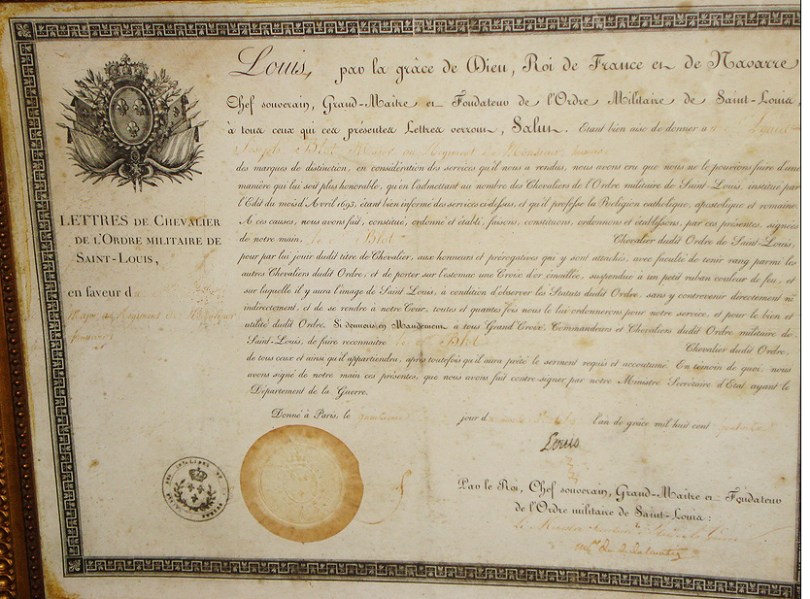 LETTRES DE CHEVALIER
DE L'ORDRE MILITAIRE DE
SAINT-LOUIS,
en faveur d
Louis, par la grâce de Dieu, Roi de France et de Navarre
Chef souverain, Grand-Maître et Fondateur de l'Ordre Militaire de Saint-Louis,
à tous ceux qui ces présentes Lettres verront, Salut. Etant bien aise de donner a
Joseph Blot Major au Régiment de
des marques de distinction, en considération des services qu'il nous a rendus, nous avons cru que nous ne le pouvions faire d'une
manière qui lui soit plus honorable, qu'en l'admettant au nombre des Chevaliers de l'Ordre militaire de Saint-Louis, institué par
l'Edit du mois d'Avril 1693, étant bien informé des services ci-dessus, et qu'il professe la Religion catholique, apostolique et romaine.
A ces causes, nous avons fait, constitué, ordonné et établi, faisons, constituons, ordonnons et établissons, par ces présentes, signées
de notre main, le Sr Blot Chevalier dudit Ordre de Saint-Louis,
pour par lui jouir dudit titre de Chevalier, aux honneurs et prérogatives qui y sont attachés, avec faculté de tenir rang parmi les
autres Chevaliers dudit Ordre, et de porter sur l'estomac une Croix d'or émaillée, suspendue à un petit ruban couleur de feu, et
sur laquelle il y aura l'image de Saint Louis, à condition d'observer les Statuts dudit Ordre, sans y contrevenir directement ni
indirectement, et de se rendre à notre Cour, toutes et quantes fois nous le lui ordonnerons pour notre service, et pour le bien et
utilité dudit Ordre. Si donnons en Mandement à tous Grand'Croix, Commandeurs et Chevaliers dudit Ordre militaire de
Saint-Louis, de faire reconnaître le Sr Blot Chevalier dudit Ordre,
de tous ceux et ainsi qu'il appartiendra, après toutefois qu'il aura prêté le serment requis et accoutumé. En témoin de quoi nous
avons signé de notre main ces présentes, que nous avons fait contre-signer par notre Ministre Secrétaire d'Etat ayant le
Département de la Guerre.
Donné à Paris, le jour d l'an de grâce mil huit cent
Louis
Par le Roi, Chef souverain, Grand-Maître et Fondateur
de l'Ordre militaire de Saint-Louis: